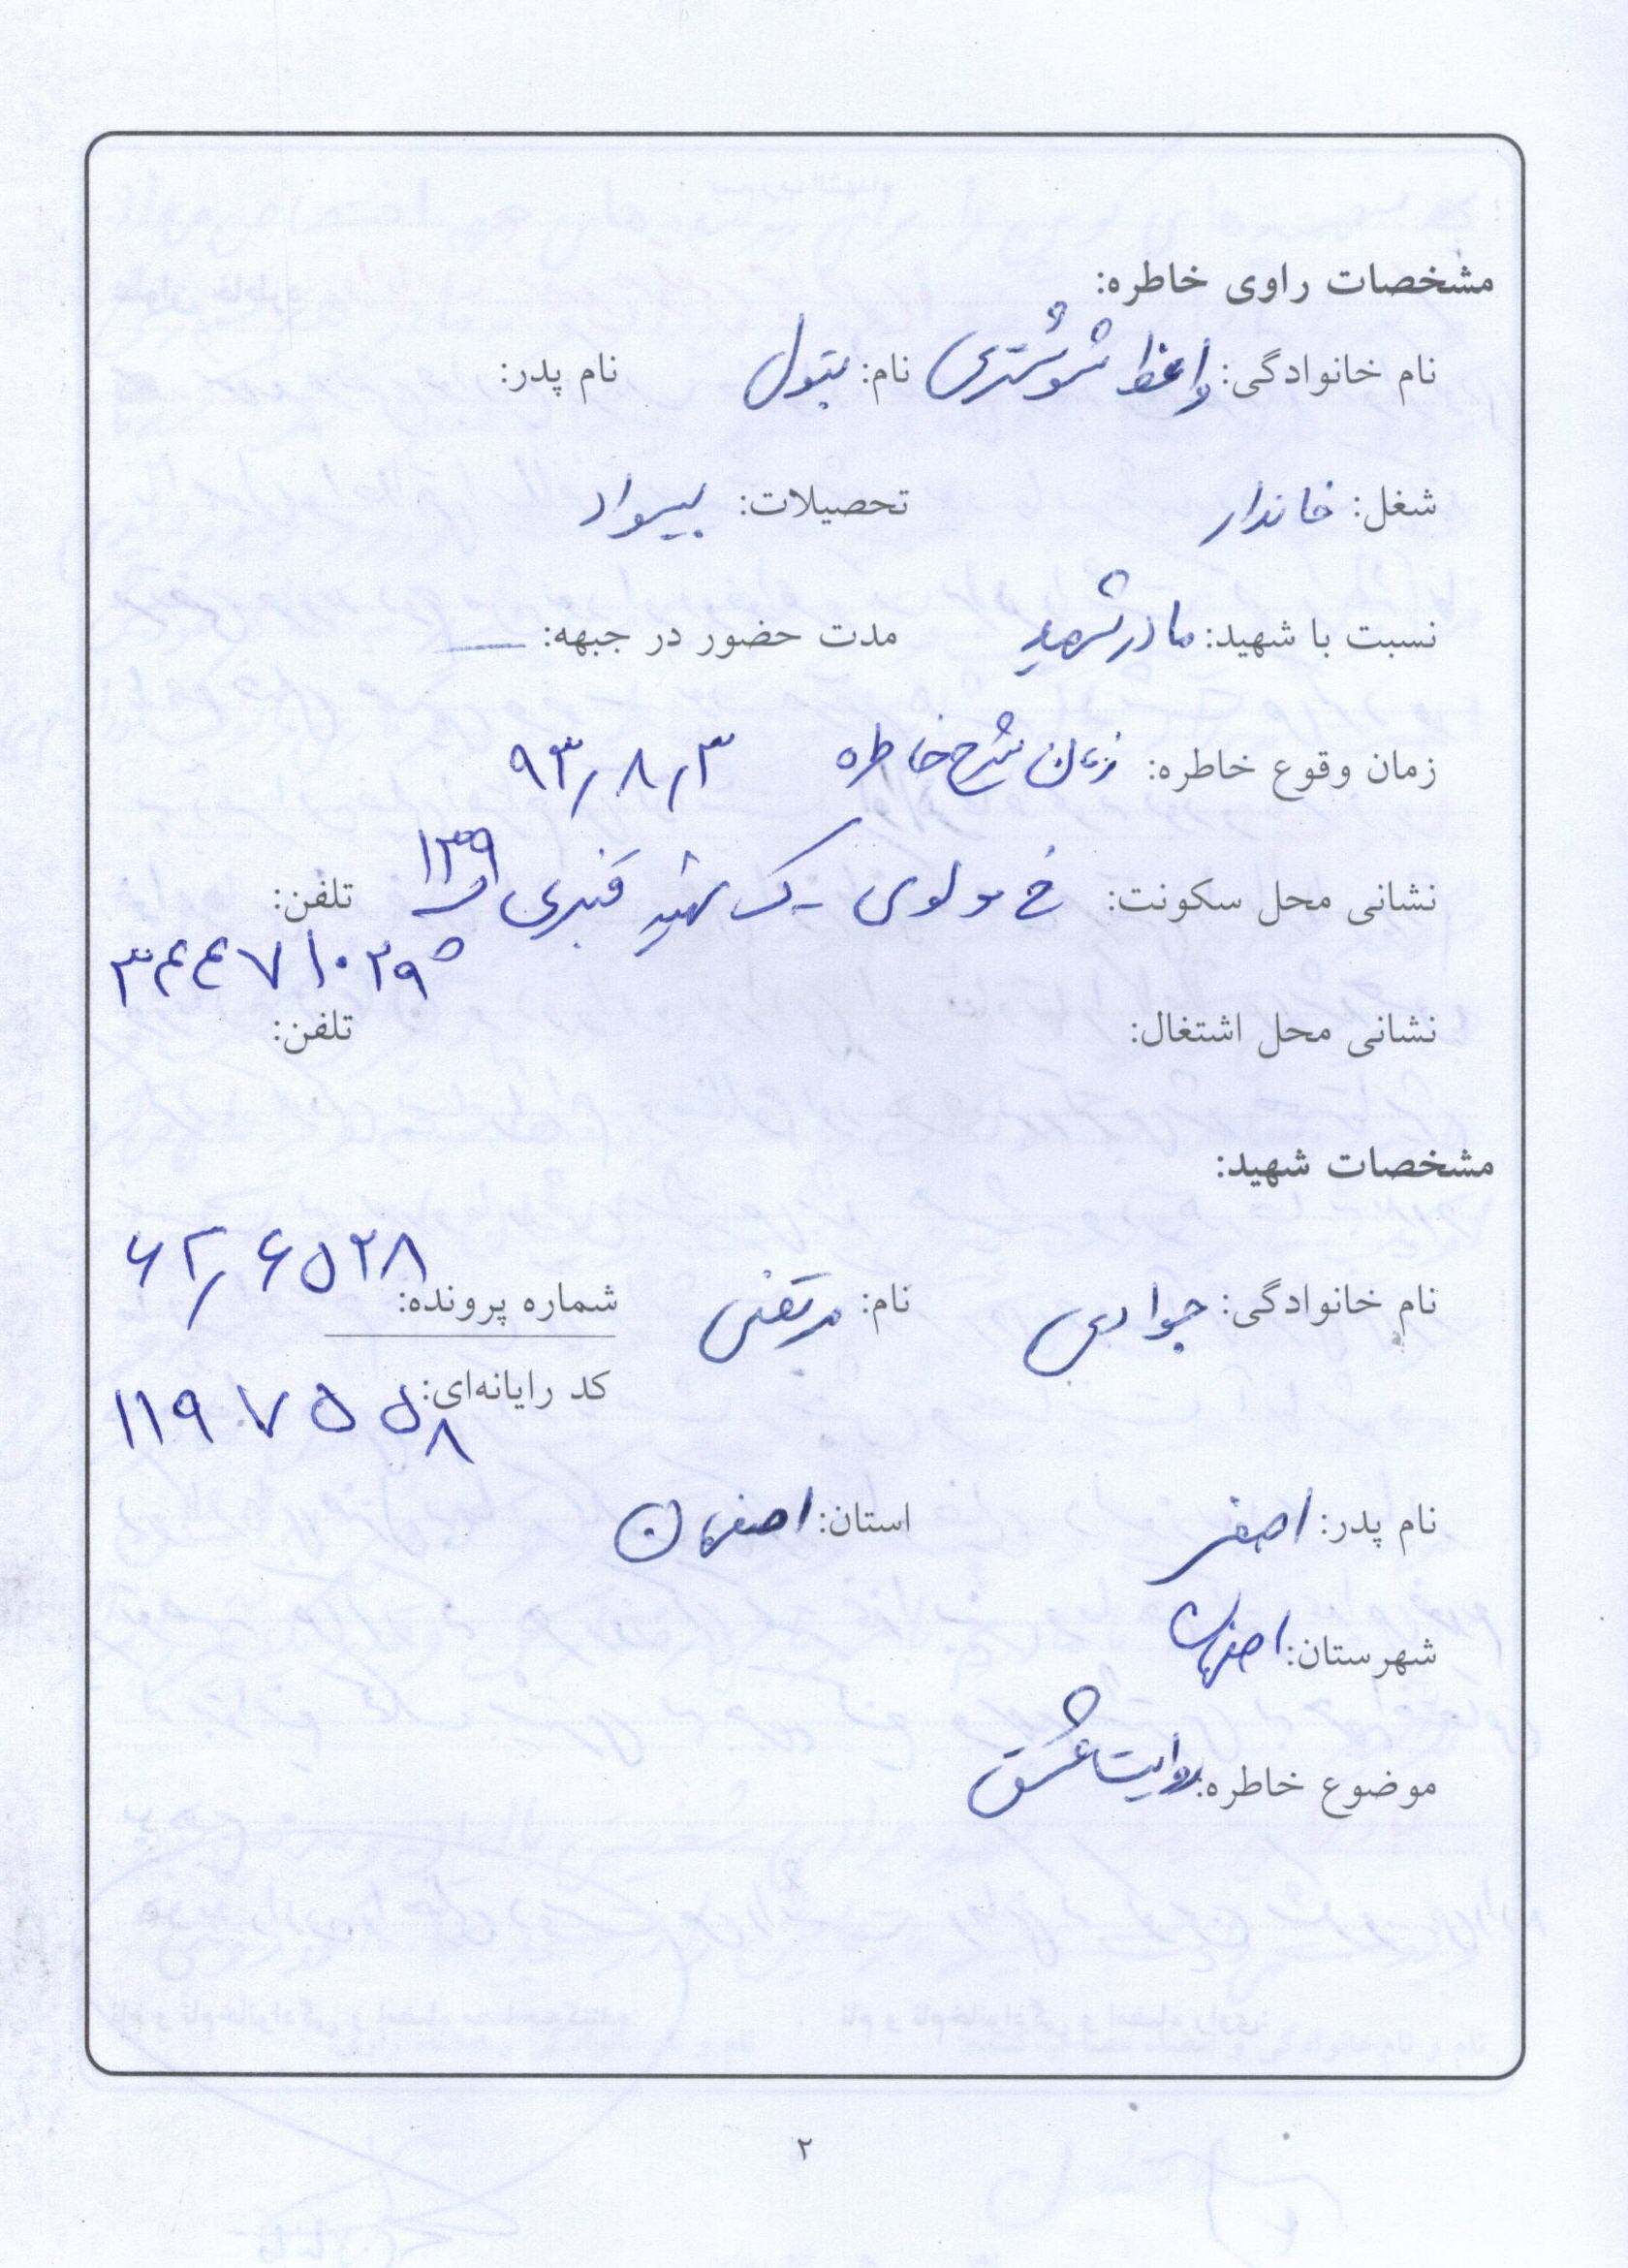 مشخصات راوی خاطره:
نام خانوادگی: واعظ شوشتری نام: بتول نام پدر:
شغل: خاندار تحصیلات: بیسواد
نسبت با شهید: مادر شهید مدت حضور در جبهه: —
زمان وقوع خاطره: زمان شرح خاطره ۹۳/۸/۳
نشانی محل سکونت: خ مولوی - ک شهید قنبری پ ۱۳۹ تلفن:
نشانی محل اشتغال: تلفن:
مشخصات شهید:
نام خانوادگی: جوادی نام: مرتضی شماره پرونده: ۶۲/۶۵۲۸
کد رایانه‌ای: ۱۱۹۷۵۵۸
نام پدر: اصغر استان: اصفهان
شهرستان: اصفهان
موضوع خاطره: روایت عشق
۲